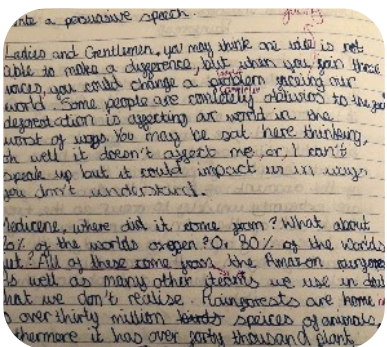 write a persuasive speech.
Ladies and Gentlemen, you may think one voice is not
able to make a difference, but when you join these
voices, you could change a problem facing our
world. Some people are completely oblivious to the
deforestation is affecting our world in the
worst of ways. You may be sat here thinking,
oh well it doesn't affect me, or, I can't
speak up but it could impact us in ways
you don't understand.
Medicene, where did it come from? What about
% of the worlds oxegen? Or 80% of the worlds
? All of these come from the Amazon
as well as many other items we use in
that we don't realise. Rainforests are home
to over thirty million speices of animals,
furthermore it has over forty thousand plant